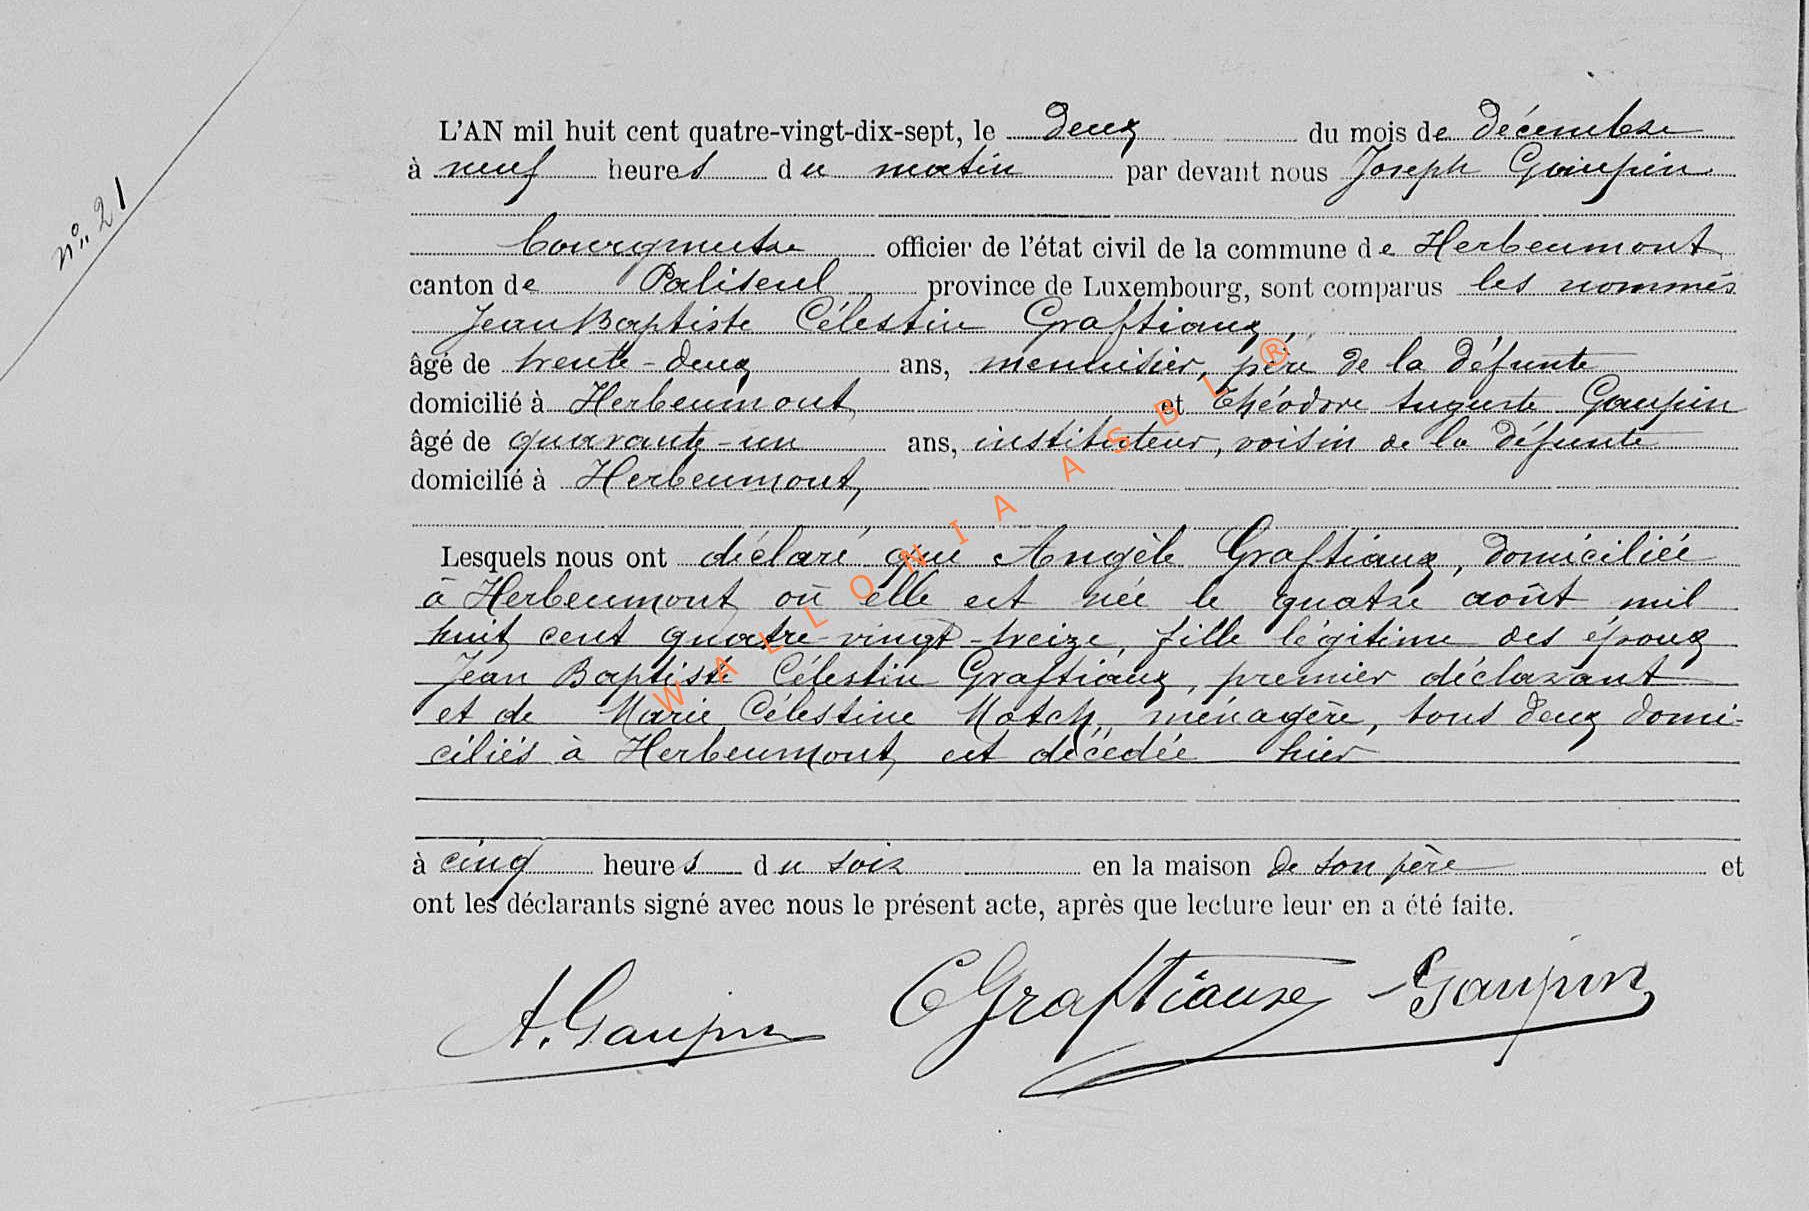 n° 21
L'AN mil huit cent quatre-vingt-dix-sept, le deux du mois de décembre
à neuf heures du matin par devant nous Joseph Gaupin
bourgmestre officier de l'état civil de la commune de Herbeumont
canton de Paliseul province de Luxembourg, sont comparus les nommés
Jean Baptiste Célestin Graftiaux,
âgé de trente-deux ans, menuisier, père de la défunte
domicilié à Herbeumont et Théodore Auguste Gaupin
âgé de quarante-un ans, instituteur, voisin de la défunte
domicilié à Herbeumont,
Lesquels nous ont déclaré que Angèle Graftiaux, domiciliée
à Herbeumont où elle est née le quatre août mil
huit cent quatre-vingt-treize, fille légitime des époux
Jean Baptiste Célestin Graftiaux, premier déclarant
et de Marie Célestine Motch, ménagère, tous deux domi-
ciliés à Herbeumont, est décédée hier
à cinq heures du soir en la maison de son père et
ont les déclarants signé avec nous le présent acte, après que lecture leur en a été faite.
A. Gaupin C Graftiaux Gaupin
WALLONIA ASBL ®